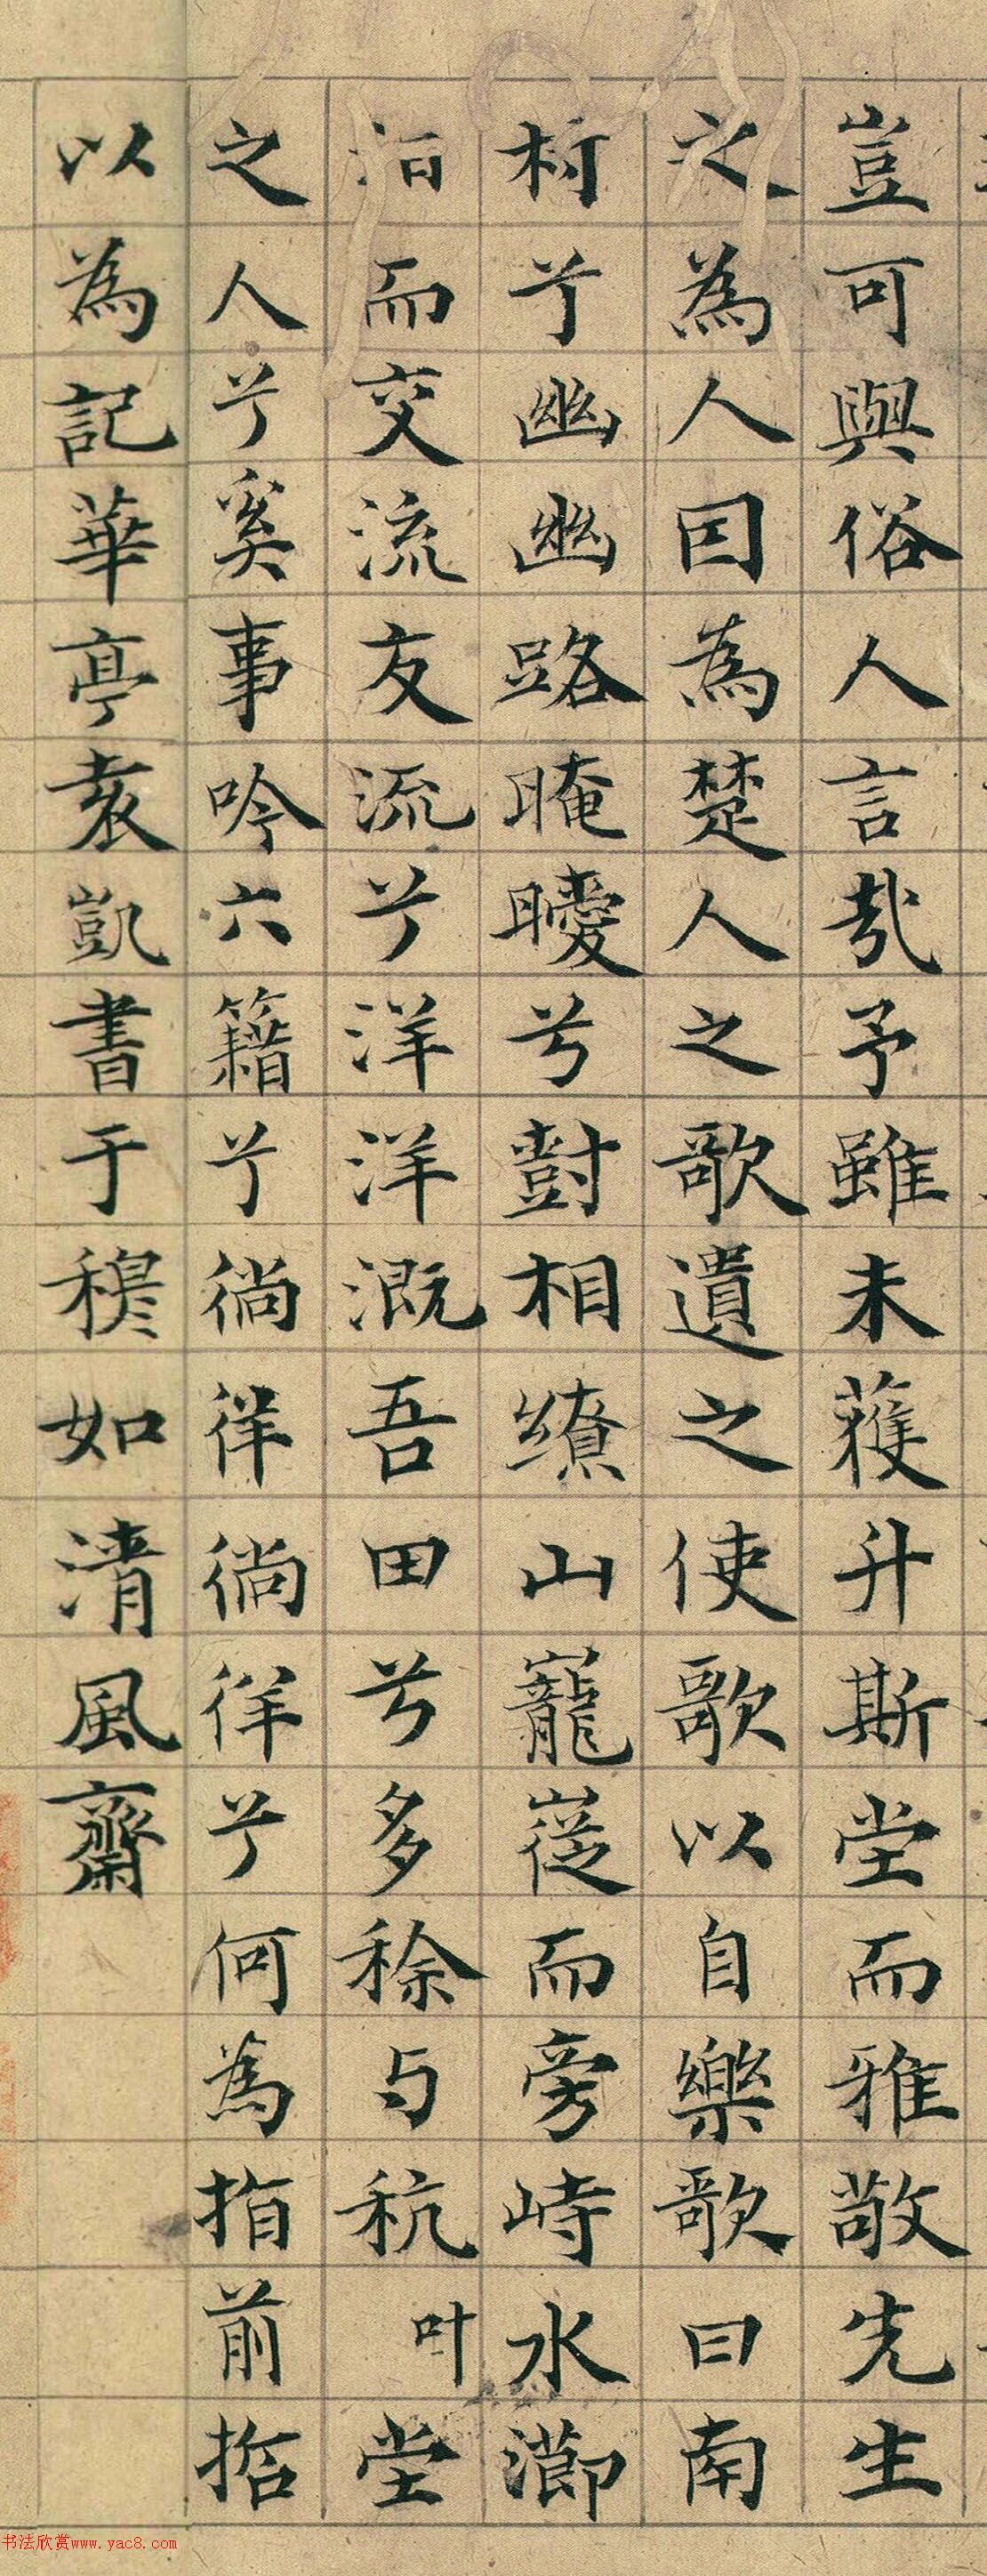 豈可與俗人言哉予雖未獲升斯堂而雅敬先生
之為人因為楚人之歌遺之使歌以自樂歌曰南
村兮幽幽路晻曖兮樹相繚山巃嵸而旁峙水瀄
汩而交流交流兮洋洋溉吾田兮多稌与秔叶堂
之人兮奚事吟六籍兮徜徉徜徉兮何為指前哲
以為記華亭袁凱書于穆如清風齋
书法欣赏www.yac8.com